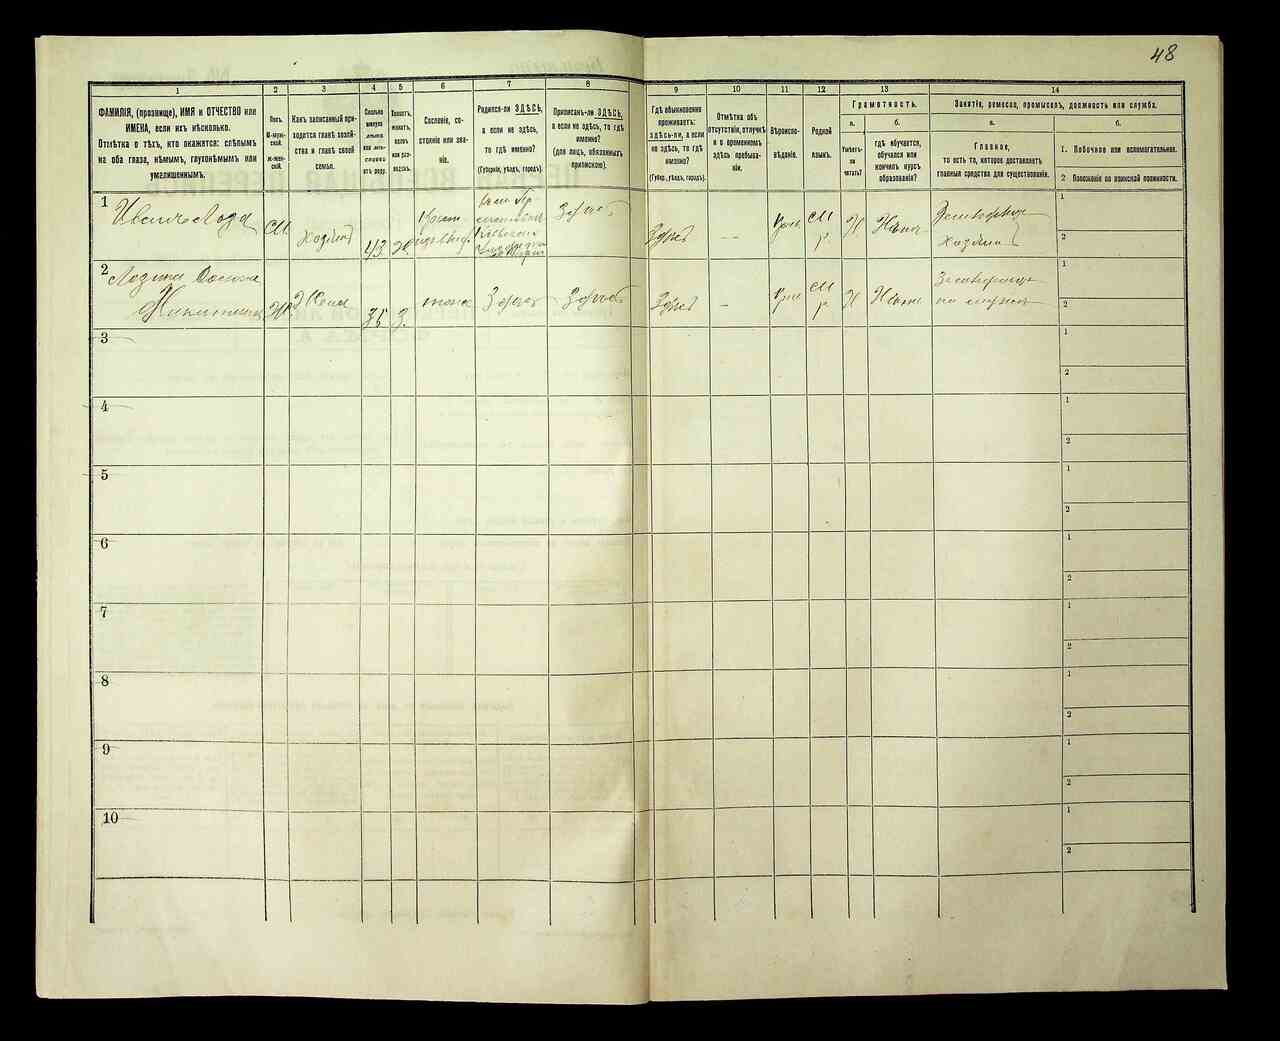 48
1
2
3
4
5
6
7
8
9
10
11
12
13
14
ФАМИЛІЯ, (прозвище), ИМЯ и ОТЧЕСТВО или
ИМЕНА, если ихъ нѣсколько.
Отмѣтка о тѣхъ, кто окажется: слѣпымъ
на оба глаза, нѣмымъ, глухонѣмымъ или
умалишеннымъ.
Полъ
М-муж-
ской.
Ж-жен-
скій.
Какъ записанный при-
ходится главѣ хозяй-
ства и главѣ своей
семьи.
Сколько
минуло
лѣтъ
или мѣс-
яцевъ
отъ роду.
Холостъ,
женатъ,
вдовъ
или раз-
веденъ.
Сословіе, со-
стояніе или зва-
ніе.
Родился-ли ЗДѢСЬ,
а если не здѣсь,
то гдѣ именно?
(Губернія, уѣздъ, городъ).
Приписанъ-ли ЗДѢСЬ,
а если не здѣсь, то гдѣ
именно?
(для лицъ, обязанныхъ
припискою).
Гдѣ обыкновенно
проживаетъ:
здѣсь-ли, а если
не здѣсь, то гдѣ
именно?
(Губер., уѣздъ, городъ).
Отмѣтка объ
отсутствіи, отлучкѣ
и о временномъ
здѣсь пребыва-
ніи.
Вѣроиспо-
вѣданіе.
Родной
языкъ.
Грамотность.
а.
Умѣетъ-
ли
читать?
б.
гдѣ обучается,
обучался или
кончилъ курсъ
образованія?
Занятіе, ремесло, промыселъ, должность или служба.
а.
Главное,
то есть то, которое доставляетъ
главныя средства для существованія.
б.
1. Побочное или вспомогательное.
2 Положеніе по воинской повинности.
1
Иванъ Лоза
М.
хозяинъ
43
Ж.
Здѣсь
Здѣсь
—
М
р
Н
хозяинъ
1
2
2
Никитина
Ж
Жена
35
З.
тоже
Здѣсь
Здѣсь
Здѣсь
—
М
р
Н
1
2
3
1
2
4
1
2
5
1
2
6
1
2
7
1
2
8
1
2
9
1
2
10
1
2